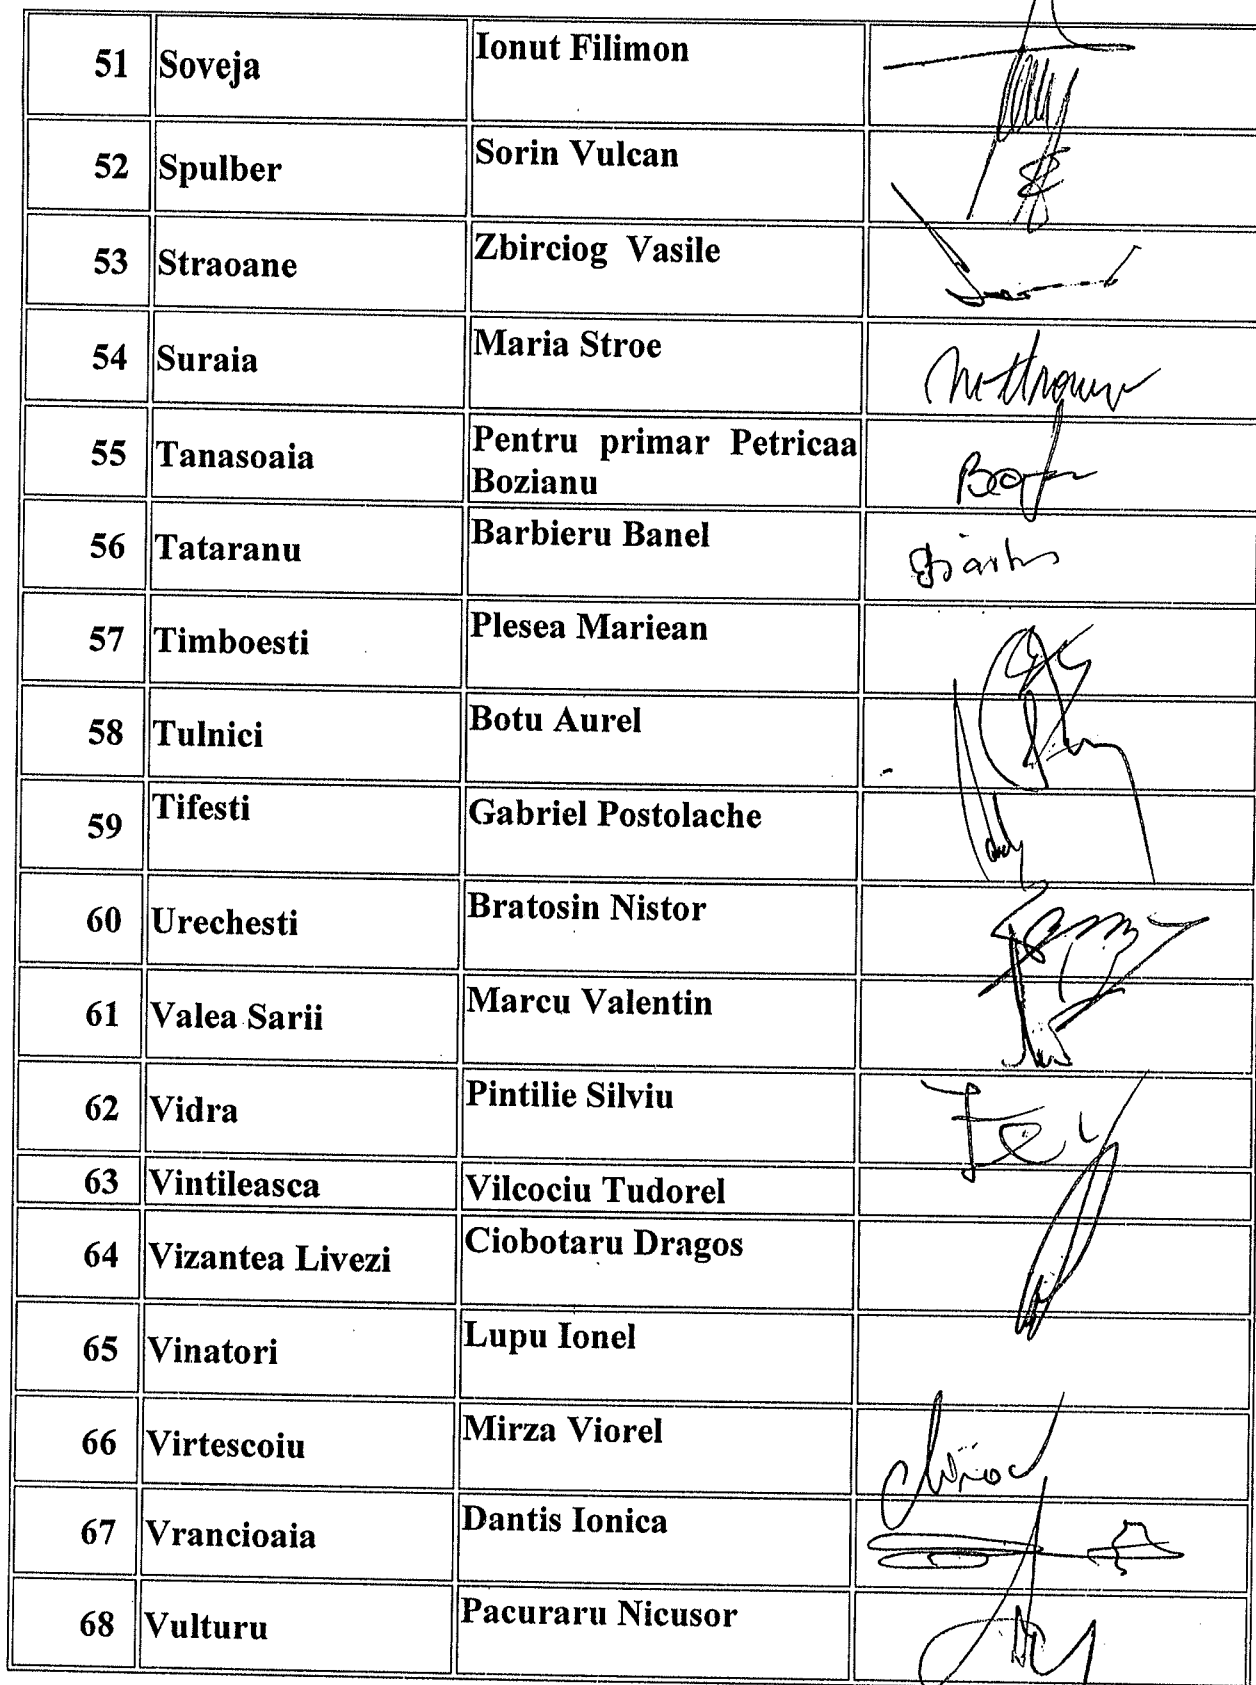 51 Soveja Ionut Filimon
52 Spulber Sorin Vulcan
53 Straoane Zbirciog Vasile
54 Suraia Maria Stroe
55 Tanasoaia Pentru primar Petricaa
Bozianu
56 Tataranu Barbieru Banel
57 Timboesti Plesea Mariean
58 Tulnici Botu Aurel
59 Tifesti Gabriel Postolache
60 Urechesti Bratosin Nistor
61 Valea Sarii Marcu Valentin
62 Vidra Pintilie Silviu
63 Vintileasca Vilcociu Tudorel
64 Vizantea Livezi Ciobotaru Dragos
65 Vinatori Lupu Ionel
66 Virtescoiu Mirza Viorel
67 Vrancioaia Dantis Ionica
68 Vulturu Pacuraru Nicusor